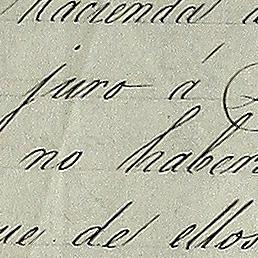 Hacienda
juro á
no habers
ue de ellos